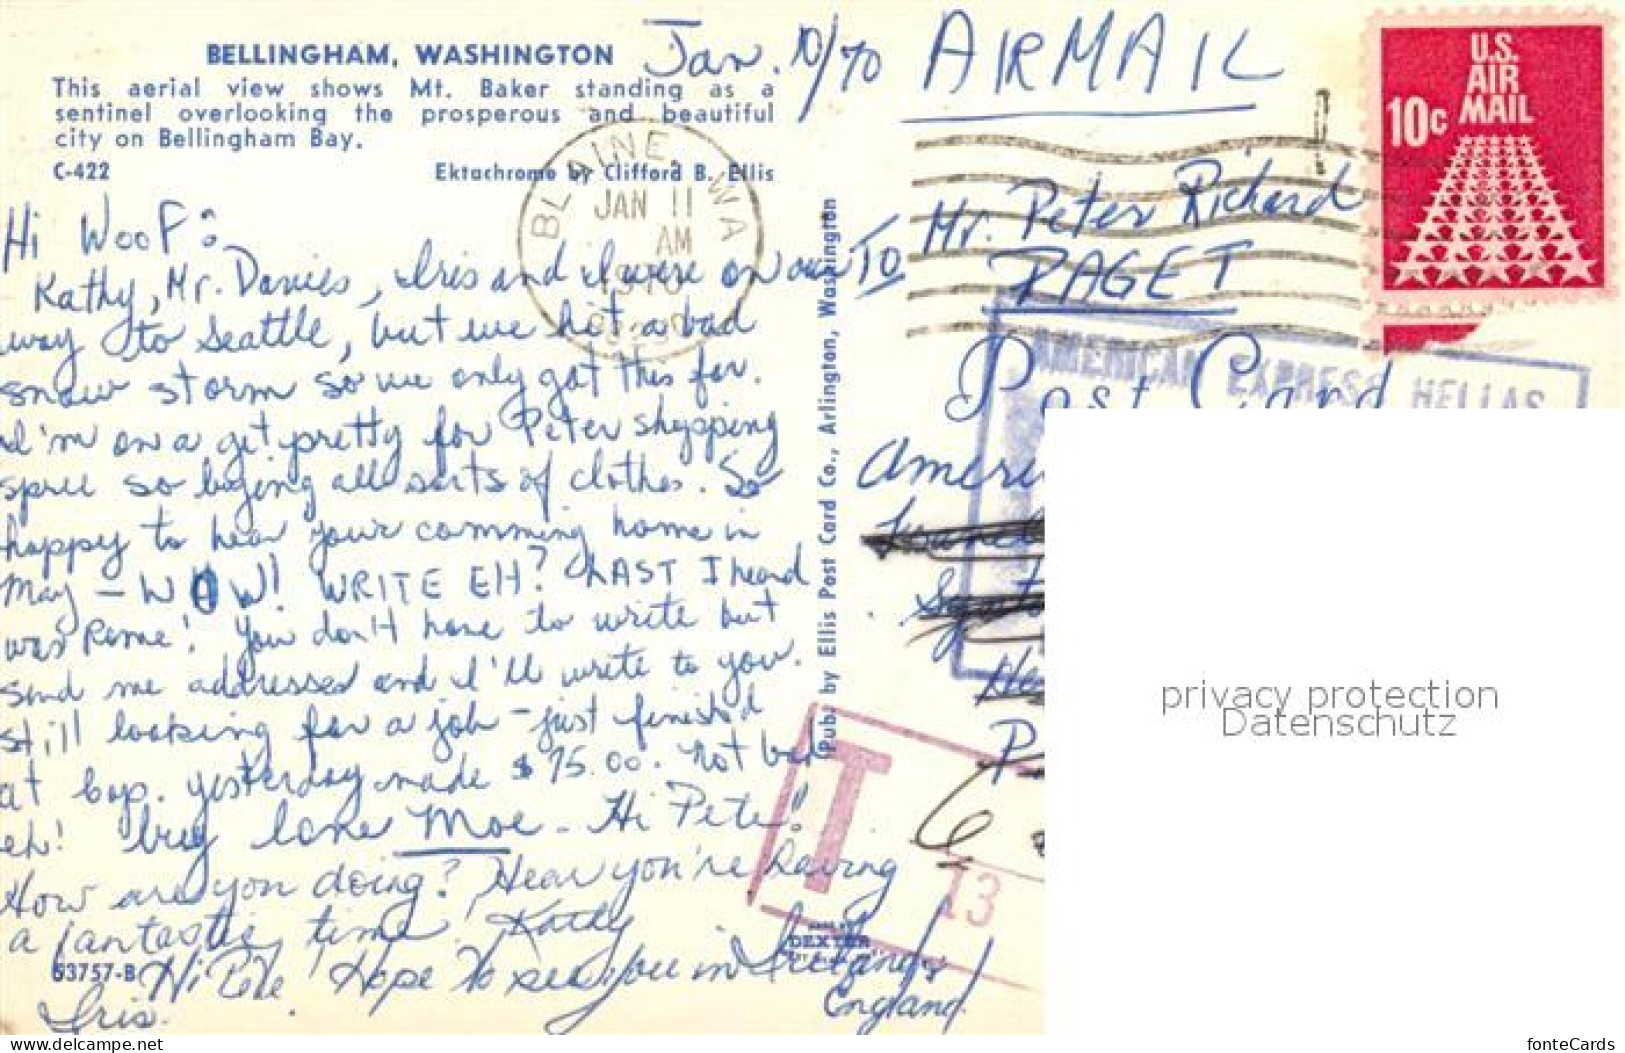 BELLINGHAM, WASHINGTON
This aerial view shows Mt. Baker standing as a
sentinel overlooking the prosperous and beautiful
city on Bellingham Bay.
C-422
Ektachrome by Clifford B. Ellis
Jan. 10/70
AIRMAIL
U.S.
AIR
MAIL
10c
BLAINE, WA
JAN 11
AM
1970
Hi Woof:
Kathy, Mr. Davies, Iris and I were on our
way to Seattle, but we hit a bad
snow storm so we only got this far.
I'm on a get pretty for Peter shopping
spree so buying all sorts of clothes. So
happy to hear your comming home in
May - WOW! WRITE EH? LAST I heard
was Rome! You don't have to write but
send me addresses and I'll write to you.
Still looking for a job - just finished
at bap. yesterday made $75.00. not bad
eh! love Moe - Hi Pete!
How are you doing? Hear you're having
a fantastic time. Kathy
Hi Pete. Hope to see you in
England.
Iris.
53757-B
Pub. by Ellis Post Card Co., Arlington, Washington
DEXTER
TO Mr. Peter Richard
PAGET
Post Card
AMERICAN EXPRESS HELLAS
Ameri
T
13
privacy protection
Datenschutz
the-postcard-shop.com
fonteCards